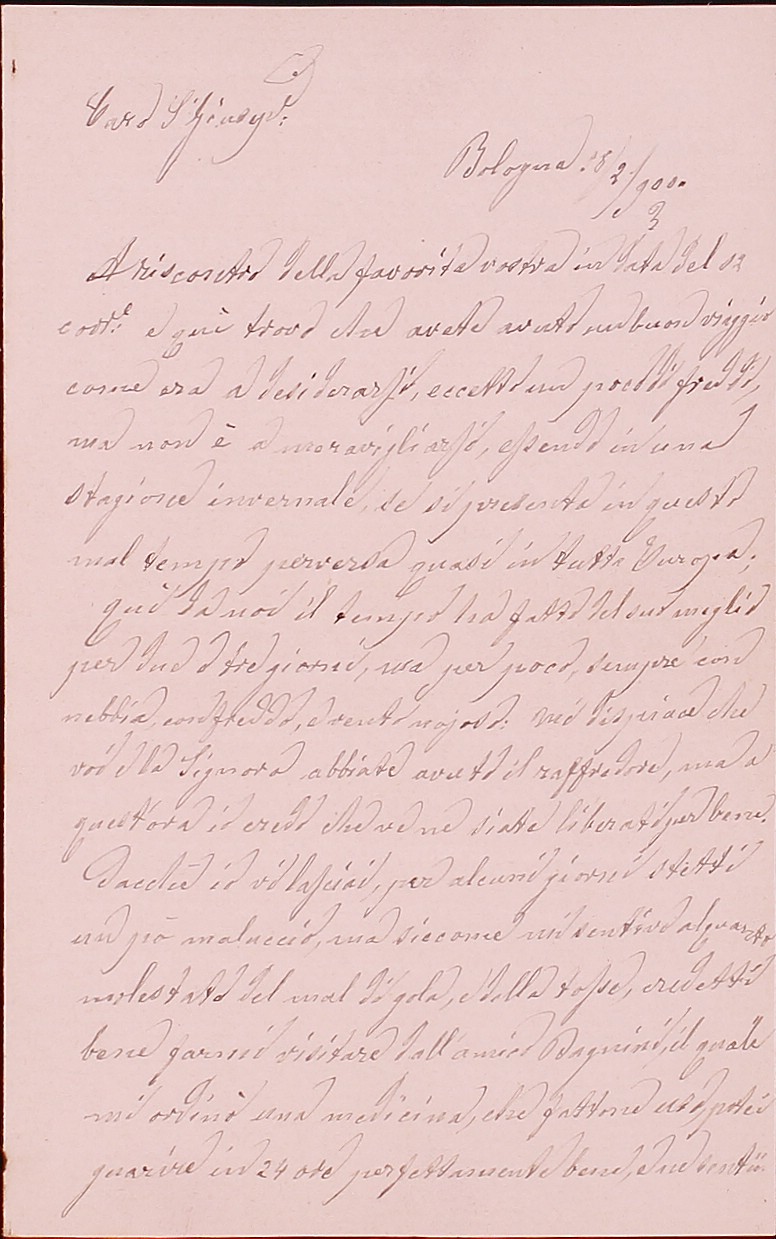 Caro
Bologna 2/900.
A riscontro della favorita vostra in data del 12
corr.e e quì trovo che avete avuto un buon viaggio
come era a desiderarsi, eccetto un poco di freddo,
ma non è a meravigliarsi, essendo in una
stagione invernale, se si presenta in questo
mal tempo perversa quasi in tutta Europa;
Quì da noi il tempo ha fatto del suo meglio
per due o tre giorni, ma per poco, sempre con
nebbia, con freddo, e vento nojoso: dispiace che
voi e la Signora abbiate avuto il raffredore, ma a
quest'ora io credo che ve ne siate liberati per bene.
Dacchè io vi lasciai, per alcuni giorni stetti
un pò maluccio, ma siccome mi sentivo alquanto
molestato del mal di gola, e della tosse, credetti
bene farmi visitare dall'amico Bagnini, il quale
mi ordinò una medicina, che fattone uso, potei
guarire in 24 ore perfettamente bene, e ne